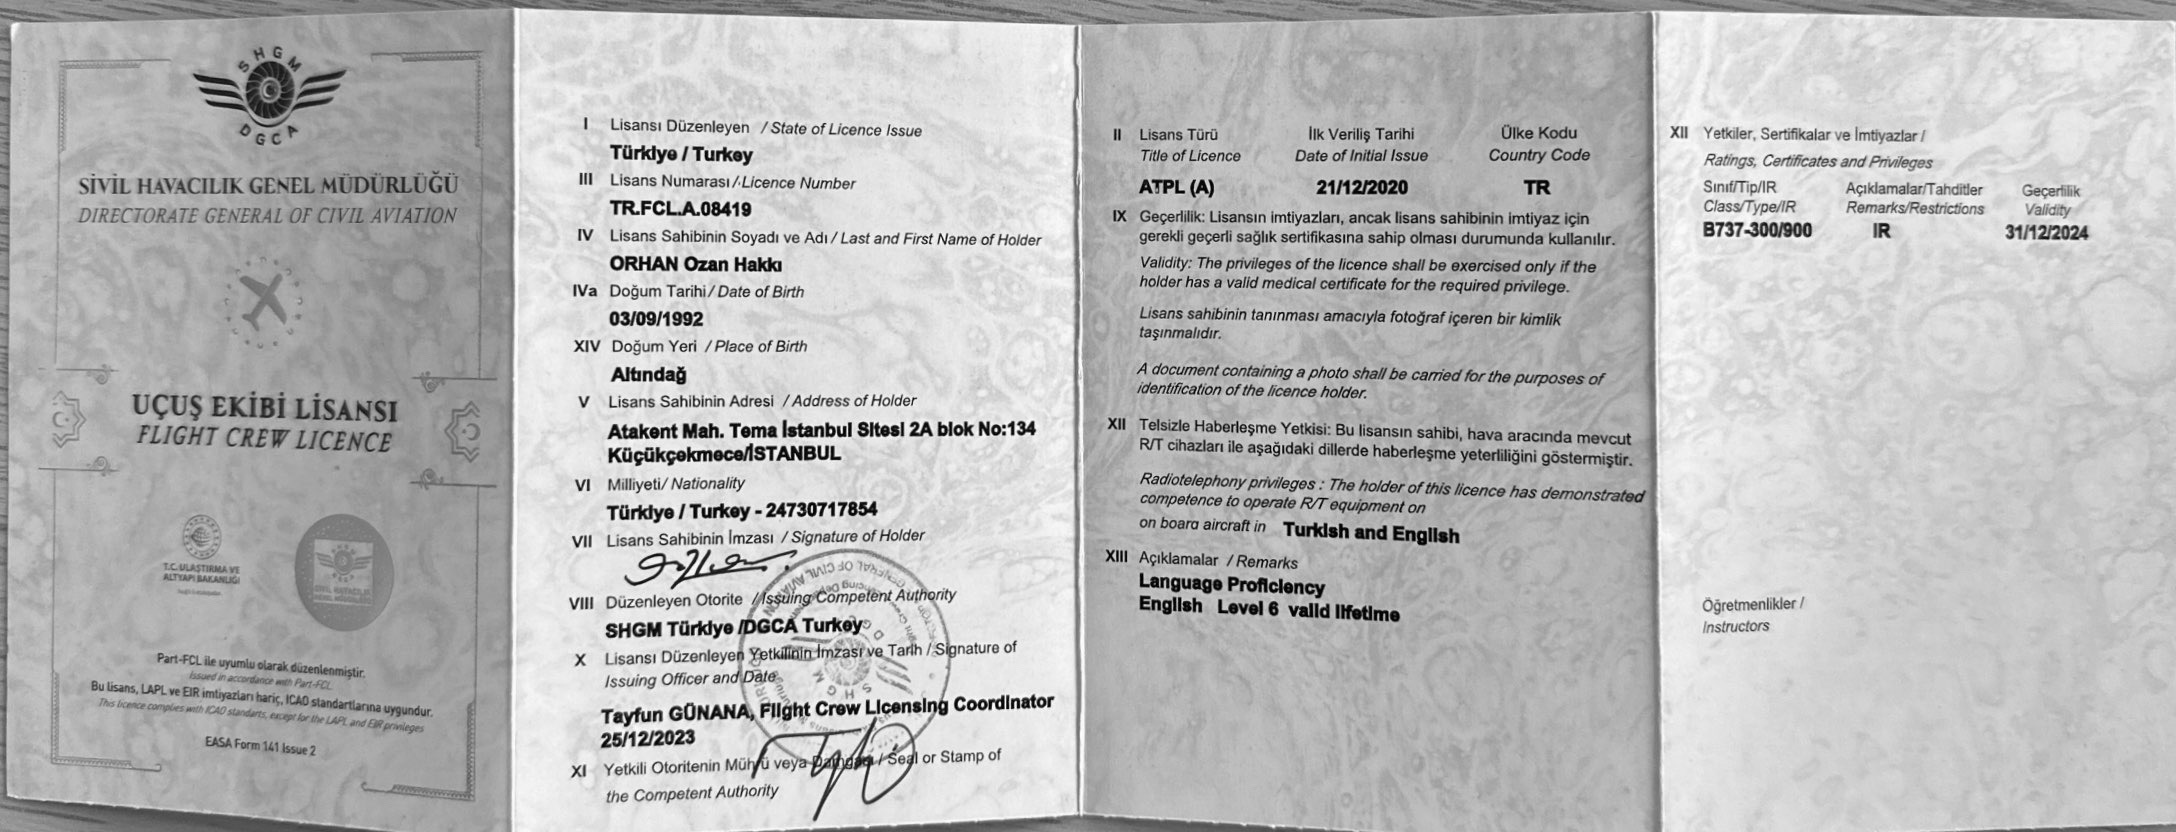 SHGM
DGCA
SİVİL HAVACILIK GENEL MÜDÜRLÜĞÜ
DIRECTORATE GENERAL OF CIVIL AVIATION
UÇUŞ EKİBİ LİSANSI
FLIGHT CREW LICENCE
T.C. ULAŞTIRMA VE
ALTYAPI BAKANLIĞI
SİVİL HAVACILIK
GENEL MÜDÜRLÜĞÜ
Part-FCL ile uyumlu olarak düzenlenmiştir.
Issued in accordance with Part-FCL
Bu lisans, LAPL ve EIR imtiyazları hariç, ICAO standartlarına uygundur.
This licence complies with ICAO standarts, except for the LAPL and EIR privileges
EASA Form 141 Issue 2
I Lisansı Düzenleyen / State of Licence Issue
Türkiye / Turkey
III Lisans Numarası / Licence Number
TR.FCL.A.08419
IV Lisans Sahibinin Soyadı ve Adı / Last and First Name of Holder
ORHAN Ozan Hakkı
IVa Doğum Tarihi / Date of Birth
03/09/1992
XIV Doğum Yeri / Place of Birth
Altındağ
V Lisans Sahibinin Adresi / Address of Holder
Atakent Mah. Tema İstanbul Sitesi 2A blok No:134
Küçükçekmece/İSTANBUL
VI Milliyeti/ Nationality
Türkiye / Turkey - 24730717854
VII Lisans Sahibinin İmzası / Signature of Holder
VIII Düzenleyen Otorite / Issuing Competent Authority
SHGM Türkiye /DGCA Turkey
X Lisansı Düzenleyen Yetkilinin İmzası ve Tarih / Signature of
Issuing Officer and Date
Tayfun GÜNANA, Flight Crew Licensing Coordinator
25/12/2023
XI Yetkili Otoritenin Mührü veya Damgası / Seal or Stamp of
the Competent Authority
II Lisans Türü İlk Veriliş Tarihi Ülke Kodu
Title of Licence Date of Initial Issue Country Code
ATPL (A) 21/12/2020 TR
IX Geçerlilik: Lisansın imtiyazları, ancak lisans sahibinin imtiyaz için
gerekli geçerli sağlık sertifikasına sahip olması durumunda kullanılır.
Validity: The privileges of the licence shall be exercised only if the
holder has a valid medical certificate for the required privilege.
Lisans sahibinin tanınması amacıyla fotoğraf içeren bir kimlik
taşınmalıdır.
A document containing a photo shall be carried for the purposes of
identification of the licence holder.
XII Telsizle Haberleşme Yetkisi: Bu lisansın sahibi, hava aracında mevcut
R/T cihazları ile aşağıdaki dillerde haberleşme yeterliliğini göstermiştir.
Radiotelephony privileges : The holder of this licence has demonstrated
competence to operate R/T equipment on
on board aircraft in Turkish and English
XIII Açıklamalar / Remarks
Language Proficiency
English Level 6 valid lifetime
XII Yetkiler, Sertifikalar ve İmtiyazlar /
Ratings, Certificates and Privileges
Sınıf/Tip/IR Açıklamalar/Tahditler Geçerlilik
Class/Type/IR Remarks/Restrictions Validity
B737-300/900 IR 31/12/2024
Öğretmenlikler /
Instructors